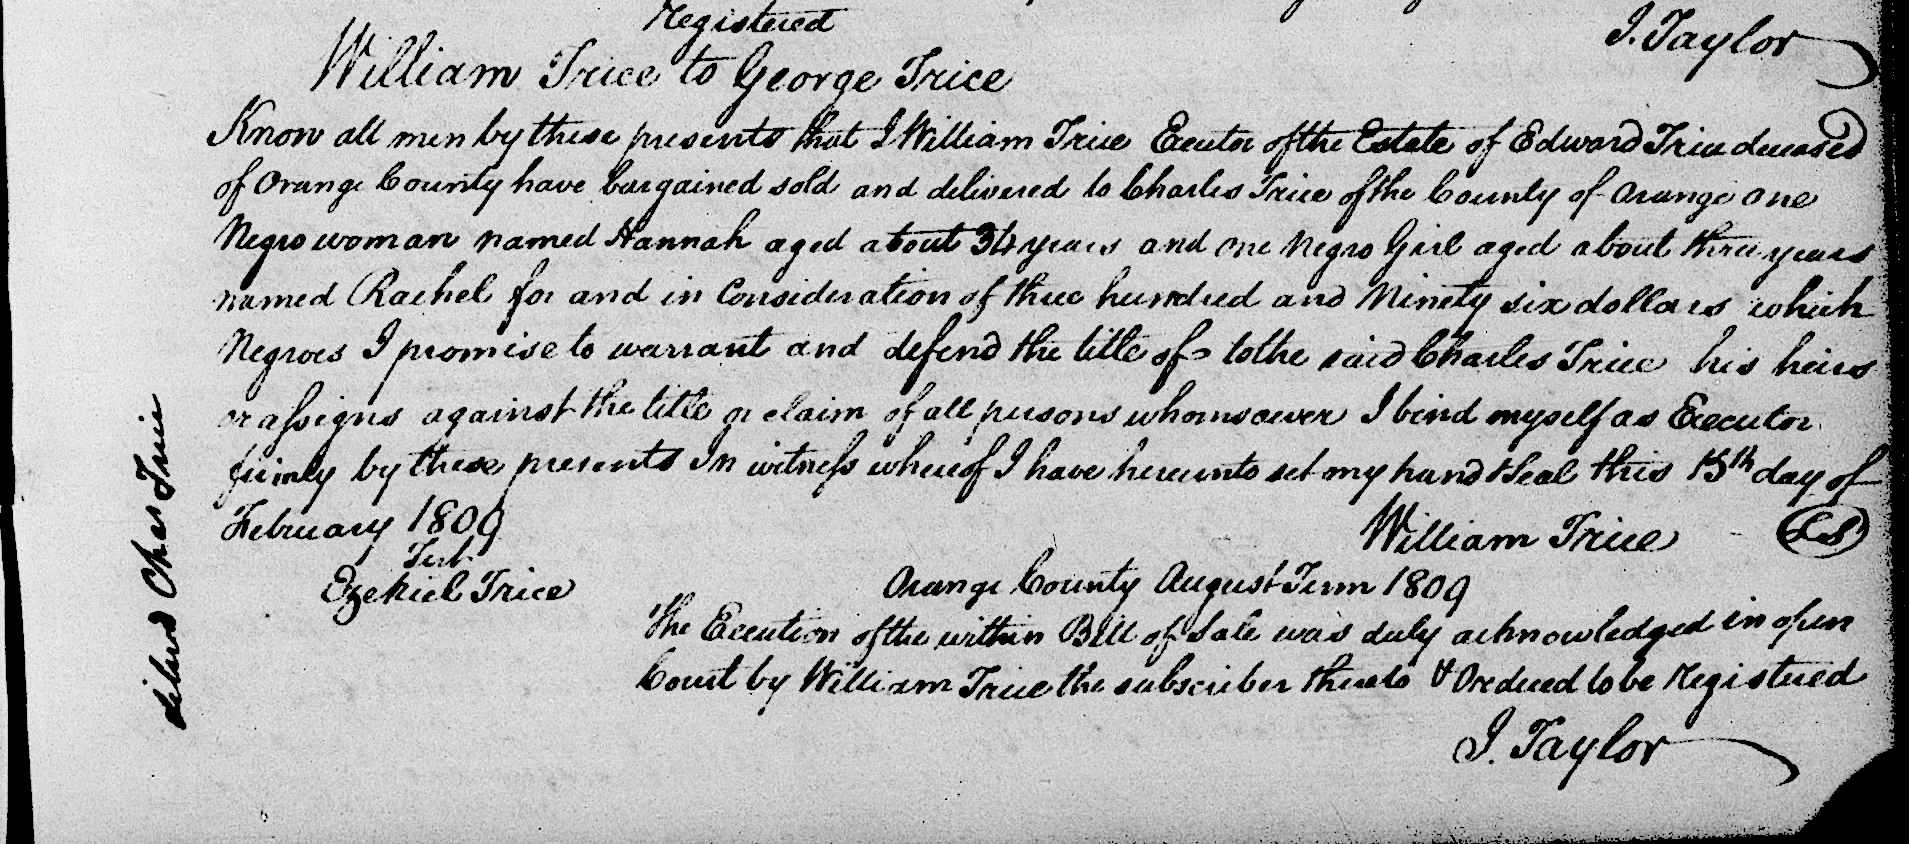 Registered
J. Taylor
William Trice to George Trice
Know all men by these presents that I William Trice Excutor of the Estate of Edward Trice deceased
of Orange County have bargained sold and delivered to Charles Trice of the County of Orange one
Negro woman named Hannah aged about 34 years and one Negro Girl aged about three years
named Rachel for and in Consideration of three hundred and Ninety six dollars which
Negroes I promise to warrant and defend the title of to the said Charles Trice his heirs
or assigns against the title or claim of all persons whomsoever I bind myself as Executor
firmly by these presents In witness whereof I have hereunto set my hand & Seal this 15th day of
February 1809
William Trice LS
Test
Ezekiel Trice
Orange County August Term 1809
The Excution of the within Bill of Sale was duly acknowledged in open
Court by William Trice the subscriber thereto & Ordered to be Registered
J. Taylor
delivd Chas Trice